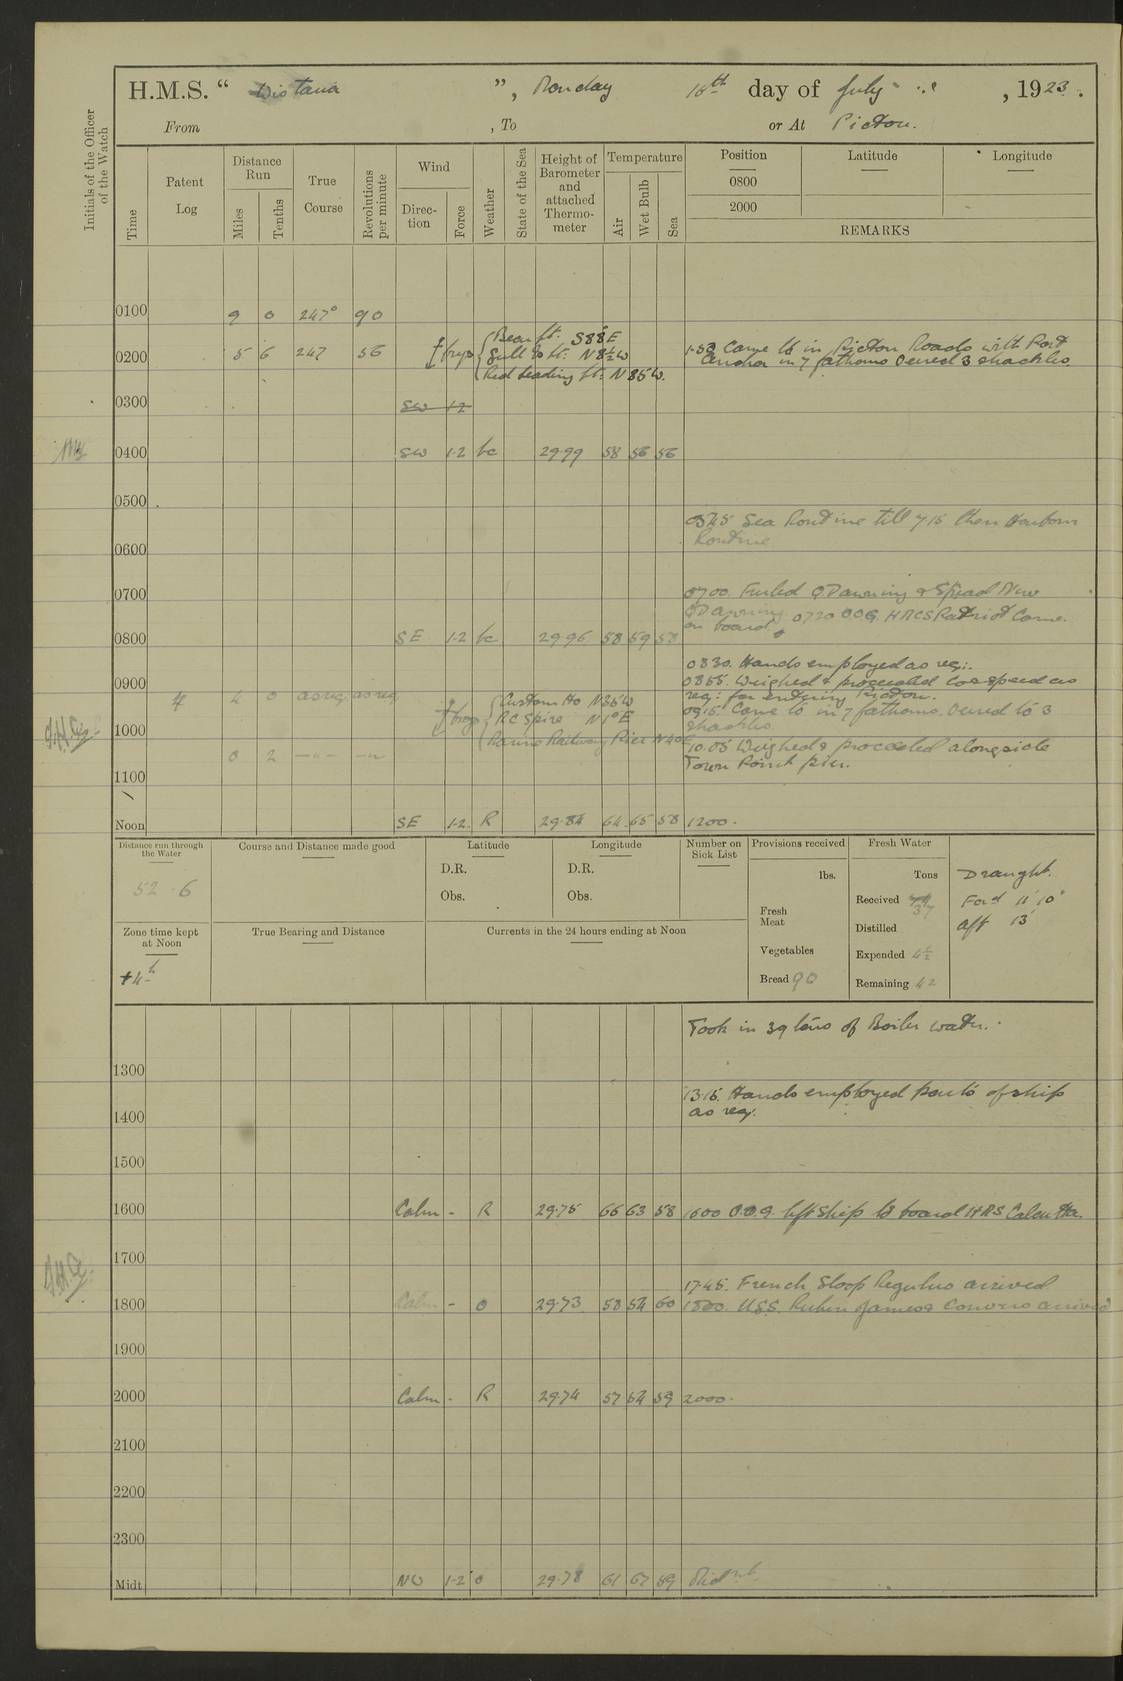 H.M.S. " Wistaria ", Monday 16th day of July , 1923.
From , To or At Pictou.
Initials of the Officer of the Watch
Time
Patent Log
Distance Run
Miles
Tenths
True Course
Revolutions per minute
Wind
Direction
Force
Weather
State of the Sea
Height of Barometer and attached Thermometer
Temperature
Air
Wet Bulb
Sea
Position
Latitude
Longitude
0800
2000
REMARKS
0100 9 0 247° 90
Bear Lt. S88E
0200 5 6 247 56 N8½W
Red Leading Lt. N85W.
1.53 Came to in Pictou Roads with Port
anchor in 7 fathoms Veered 3 shackles.
0300 SW 1-2
0400 SW 1-2 bc 29.99 58 56 56
0500
0545 Sea Routine till 715 then Harbour
Routine
0600
0700
0700. Furled Awning & Spread New
Awning 0720 OOG. HMCS Patriot Came
on board
0800 SE 1-2 bc 29.96 58 59 58
0830. Hands employed as req:.
0855. Weighed & proceeded Co & speed as
req: for entering Pictou.
0900 4 4 0 as req. as req.
Custom Ho N36W
RC Spire N1°E
Railway Pier N40E
0915. Came to in 7 fathoms. Veered to 3
shackles.
1000
10.05 Weighed & proceeded alongside
Town Point pier.
0 2 -"- -"-
1100
Noon SE 1-2 R 29.84 64 65 58 1200.
Distance run through the Water
52.6
Course and Distance made good
Latitude
D.R.
Obs.
Longitude
D.R.
Obs.
Number on Sick List
Provisions received
lbs.
Fresh Meat
Vegetables
Bread 90
Fresh Water
Tons
Received 37
Distilled
Expended 4½
Remaining 42
Draught.
Ford 11' 10"
Aft 13'
Zone time kept at Noon
+4h
True Bearing and Distance
Currents in the 24 hours ending at Noon
Took in 39 tons of Boiler water.
1300
1315. Hands employed parts of ship
as req.
1400
1500
1600 Calm - R 29.75 66 63 58 1600 O.O.G. left ship to board HMS Calcutta.
1700
1745. French Sloop Regulus arrived
1800 Calm - O 29.73 58 54 60 1800. USS. Converse arrived
1900
2000 Calm - R 29.74 57 54 59 2000.
2100
2200
2300
Midt NW 1-2 O 29.78 61 67 59 Midnt.